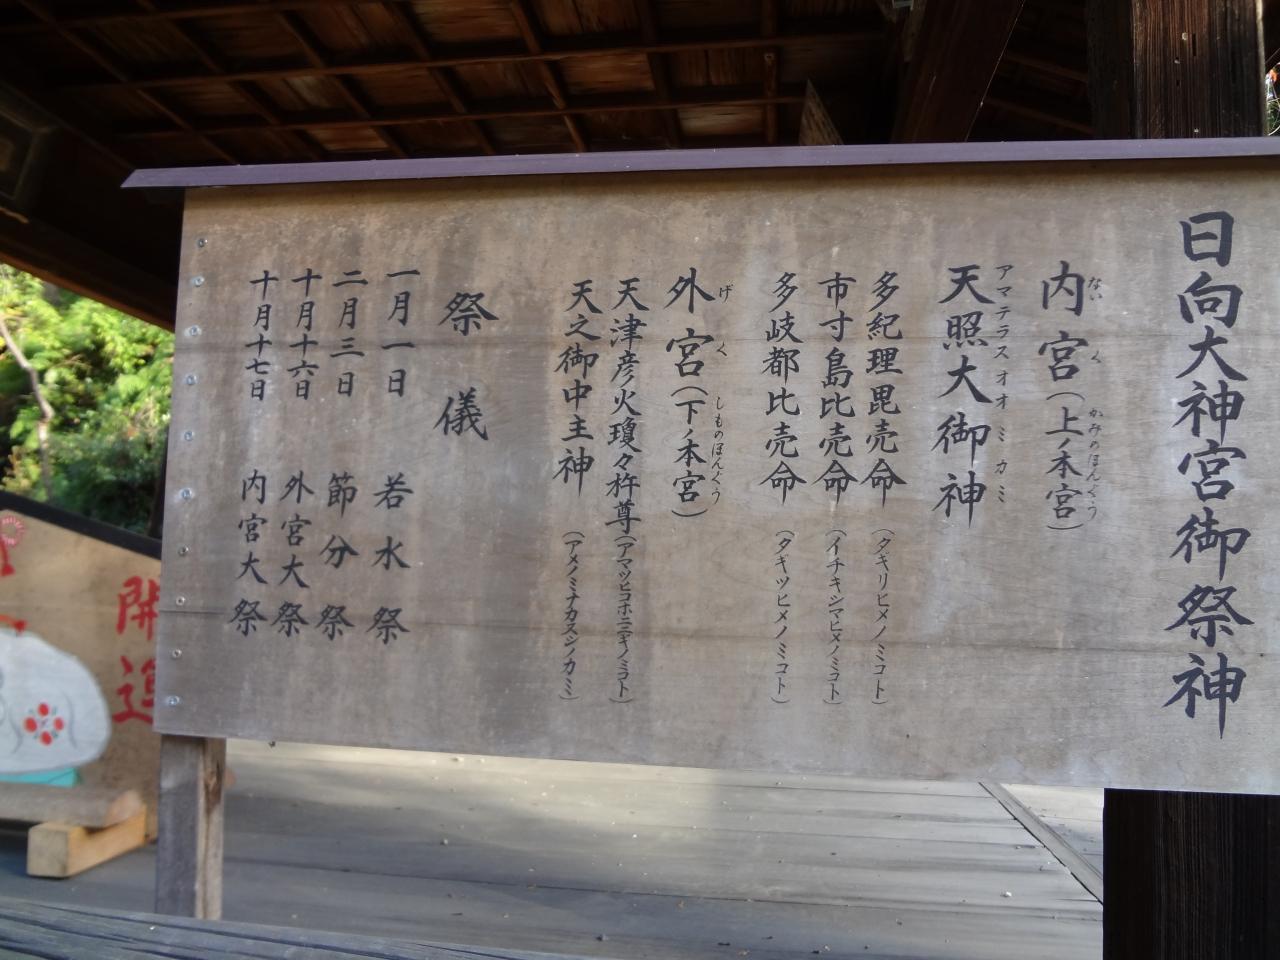 日向大神宮御祭神
内宮(上ノ本宮)
ないくかみのほんぐう
天照大御神
アマテラスオオミカミ
多紀理毘売命(タキリヒメノミコト)
市寸島比売命(イチキシマヒメノミコト)
多岐都比売命(タギツヒメノミコト)
外宮(下ノ本宮)
げくしものほんぐう
天津彦火瓊々杵尊(アマツヒコホニニギノミコト)
天之御中主神(アメノミナカヌシノカミ)
祭儀
一月一日 若水祭
二月三日 節分祭
十月十六日 外宮大祭
十月十七日 内宮大祭
開